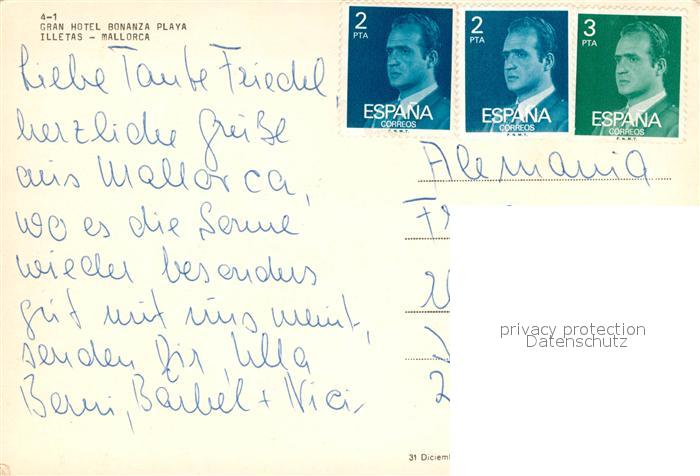 4-1
GRAN HOTEL BONANZA PLAYA
ILLETAS - MALLORCA
Liebe Tante Friedel,
herzliche Grüße
aus Mallorca,
wo es die Sonne
wieder besonders
gut mit uns meint,
senden Dir, Ulla
Berni, Bärbel + Nici
2
PTA
ESPAÑA
CORREOS
F.N.M.T.
2
PTA
ESPAÑA
CORREOS
F.N.M.T.
3
PTA
ESPAÑA
CORREOS
F.N.M.T.
Alemania
Fr
2
privacy protection
Datenschutz
31 Diciem